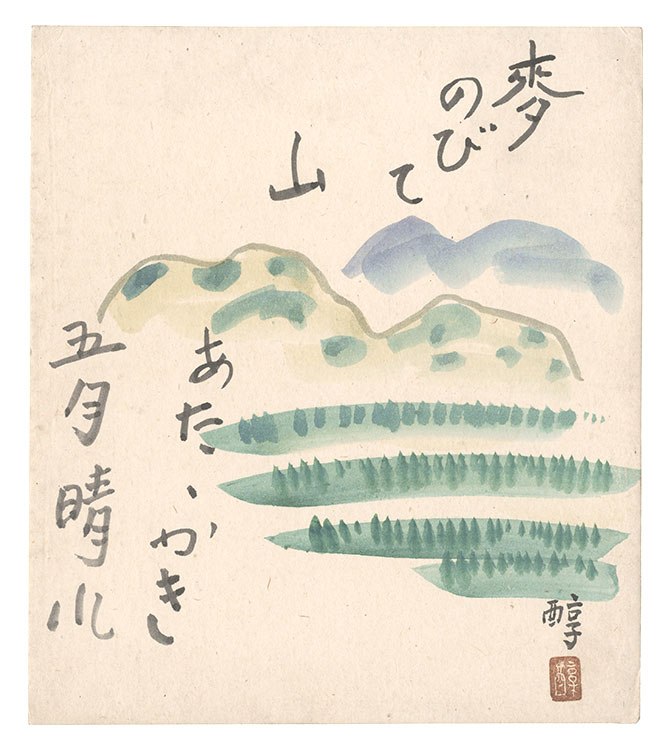 麥
のび
て
山
あたゝ
かき
五月晴れ
醇